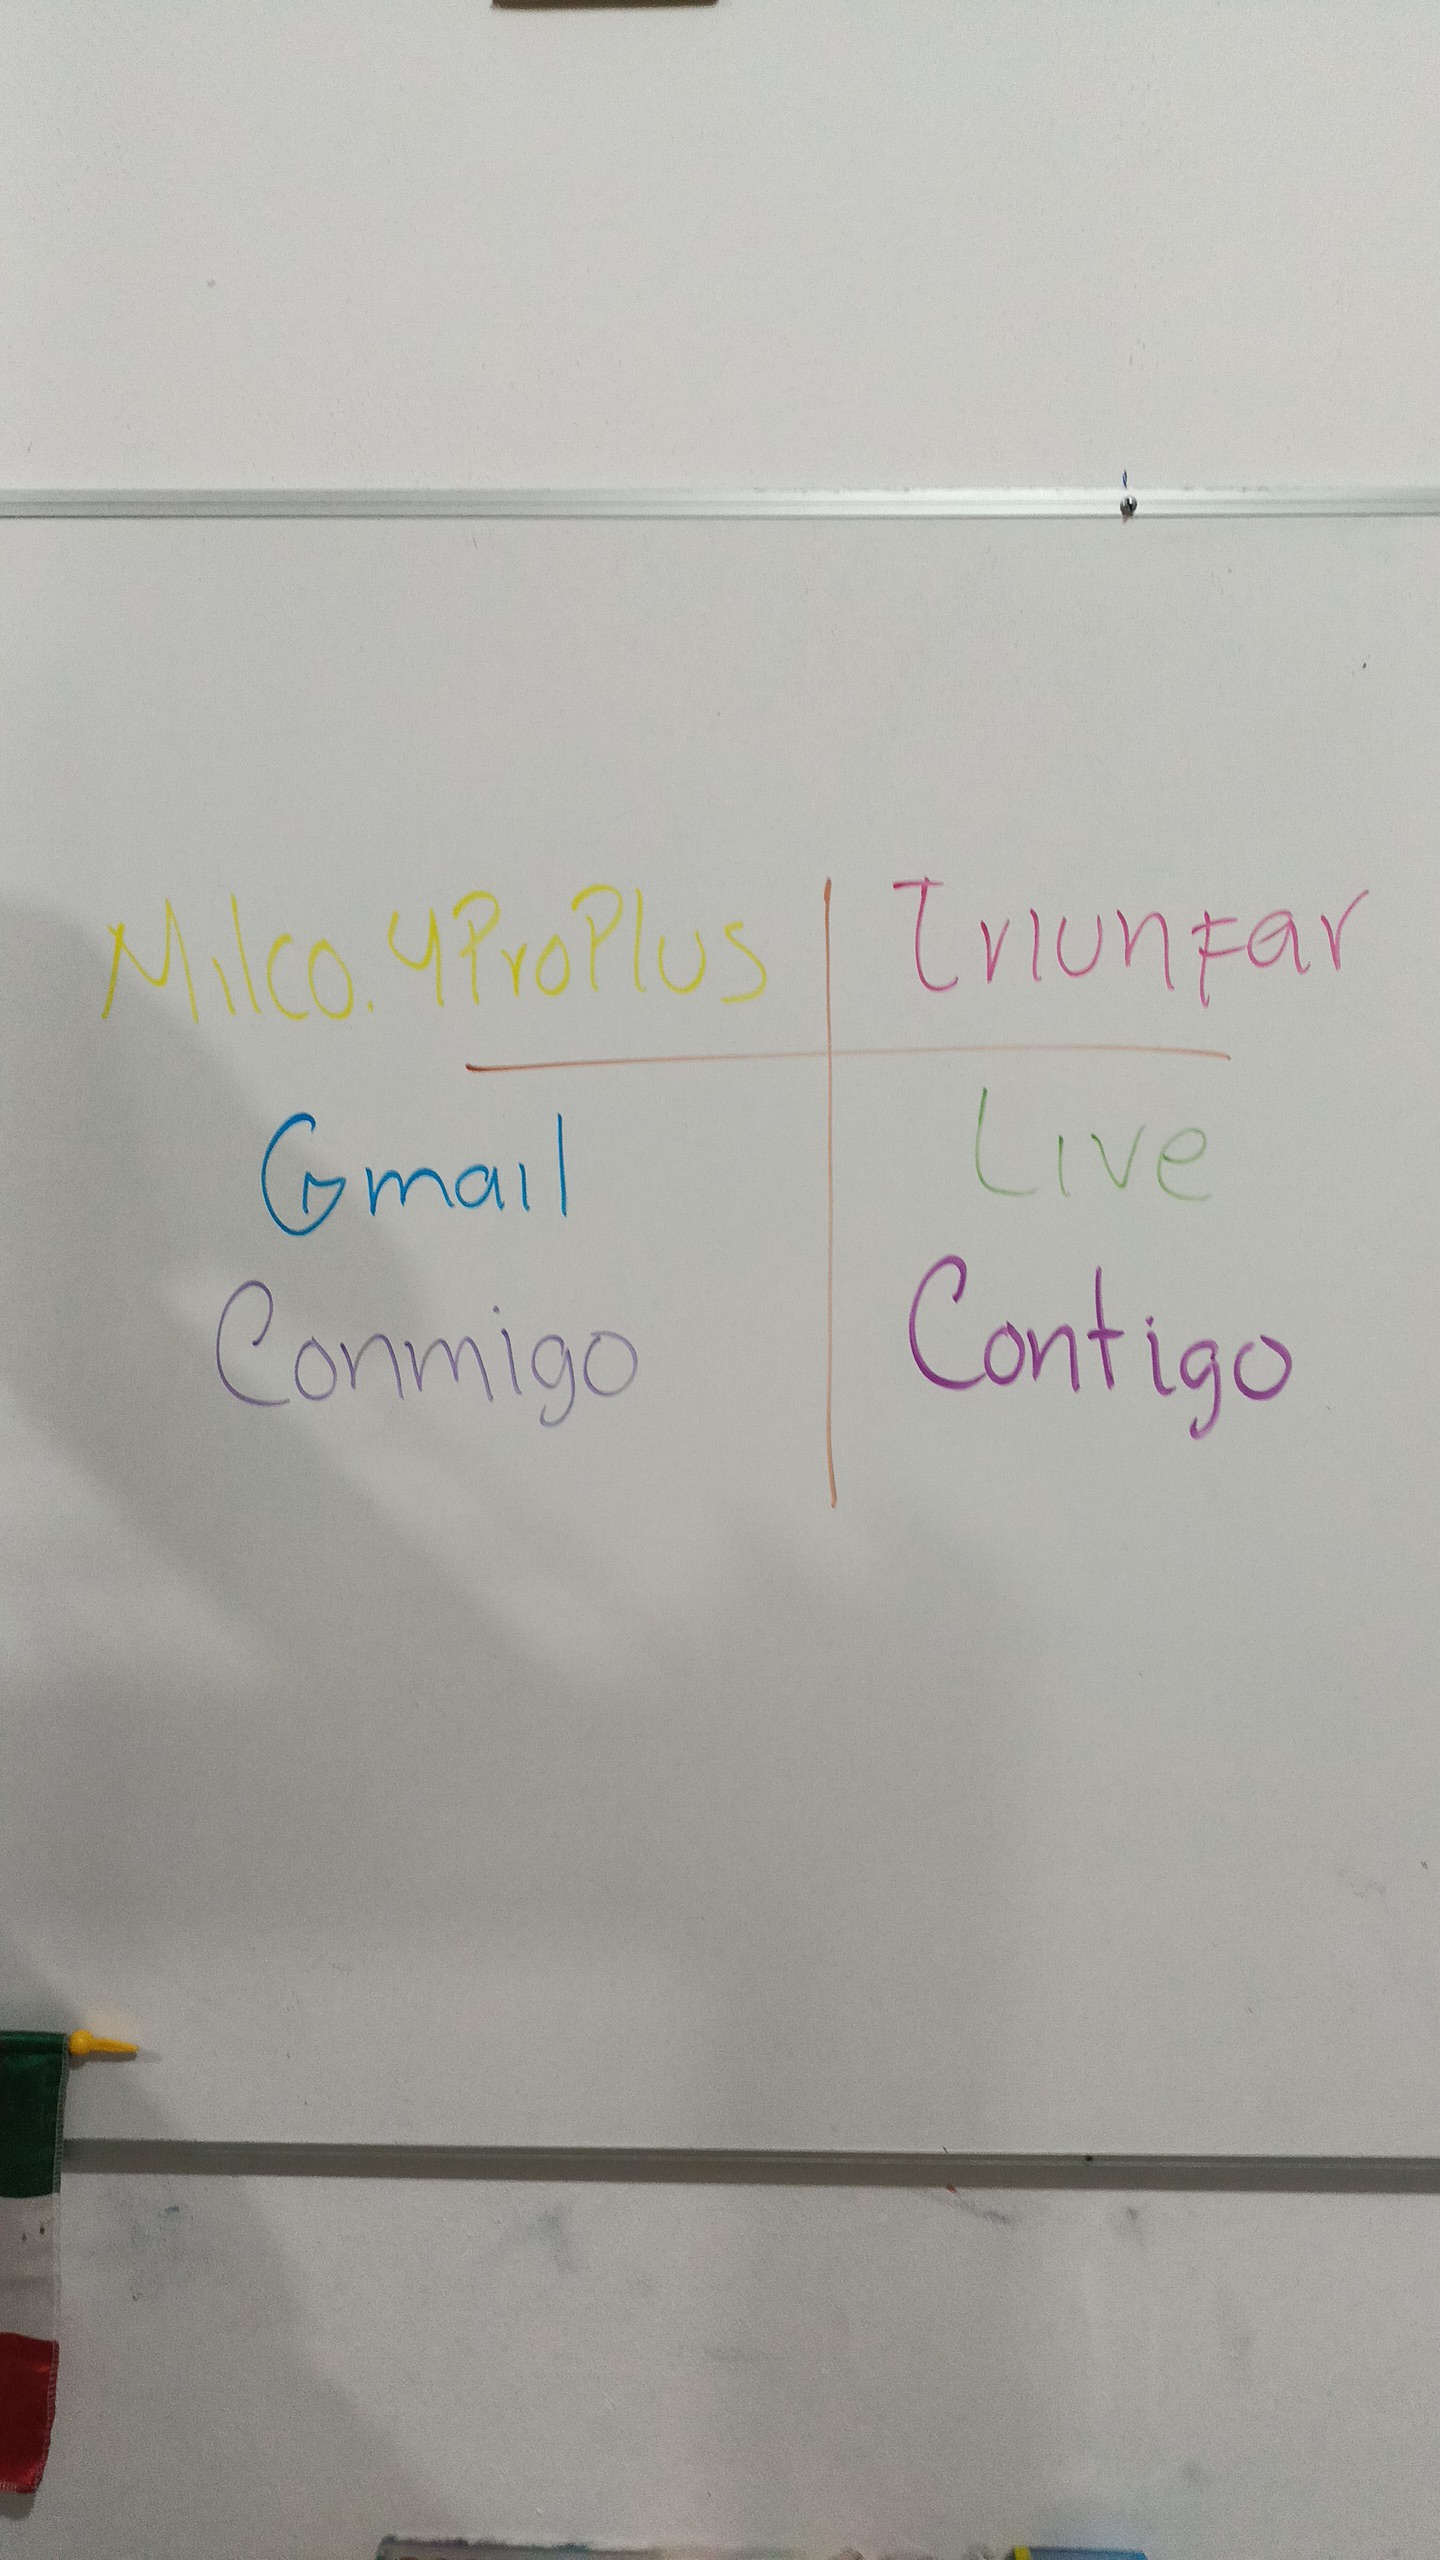 Milco.4ProPlus Triunfar
Gmail Live
Conmigo Contigo